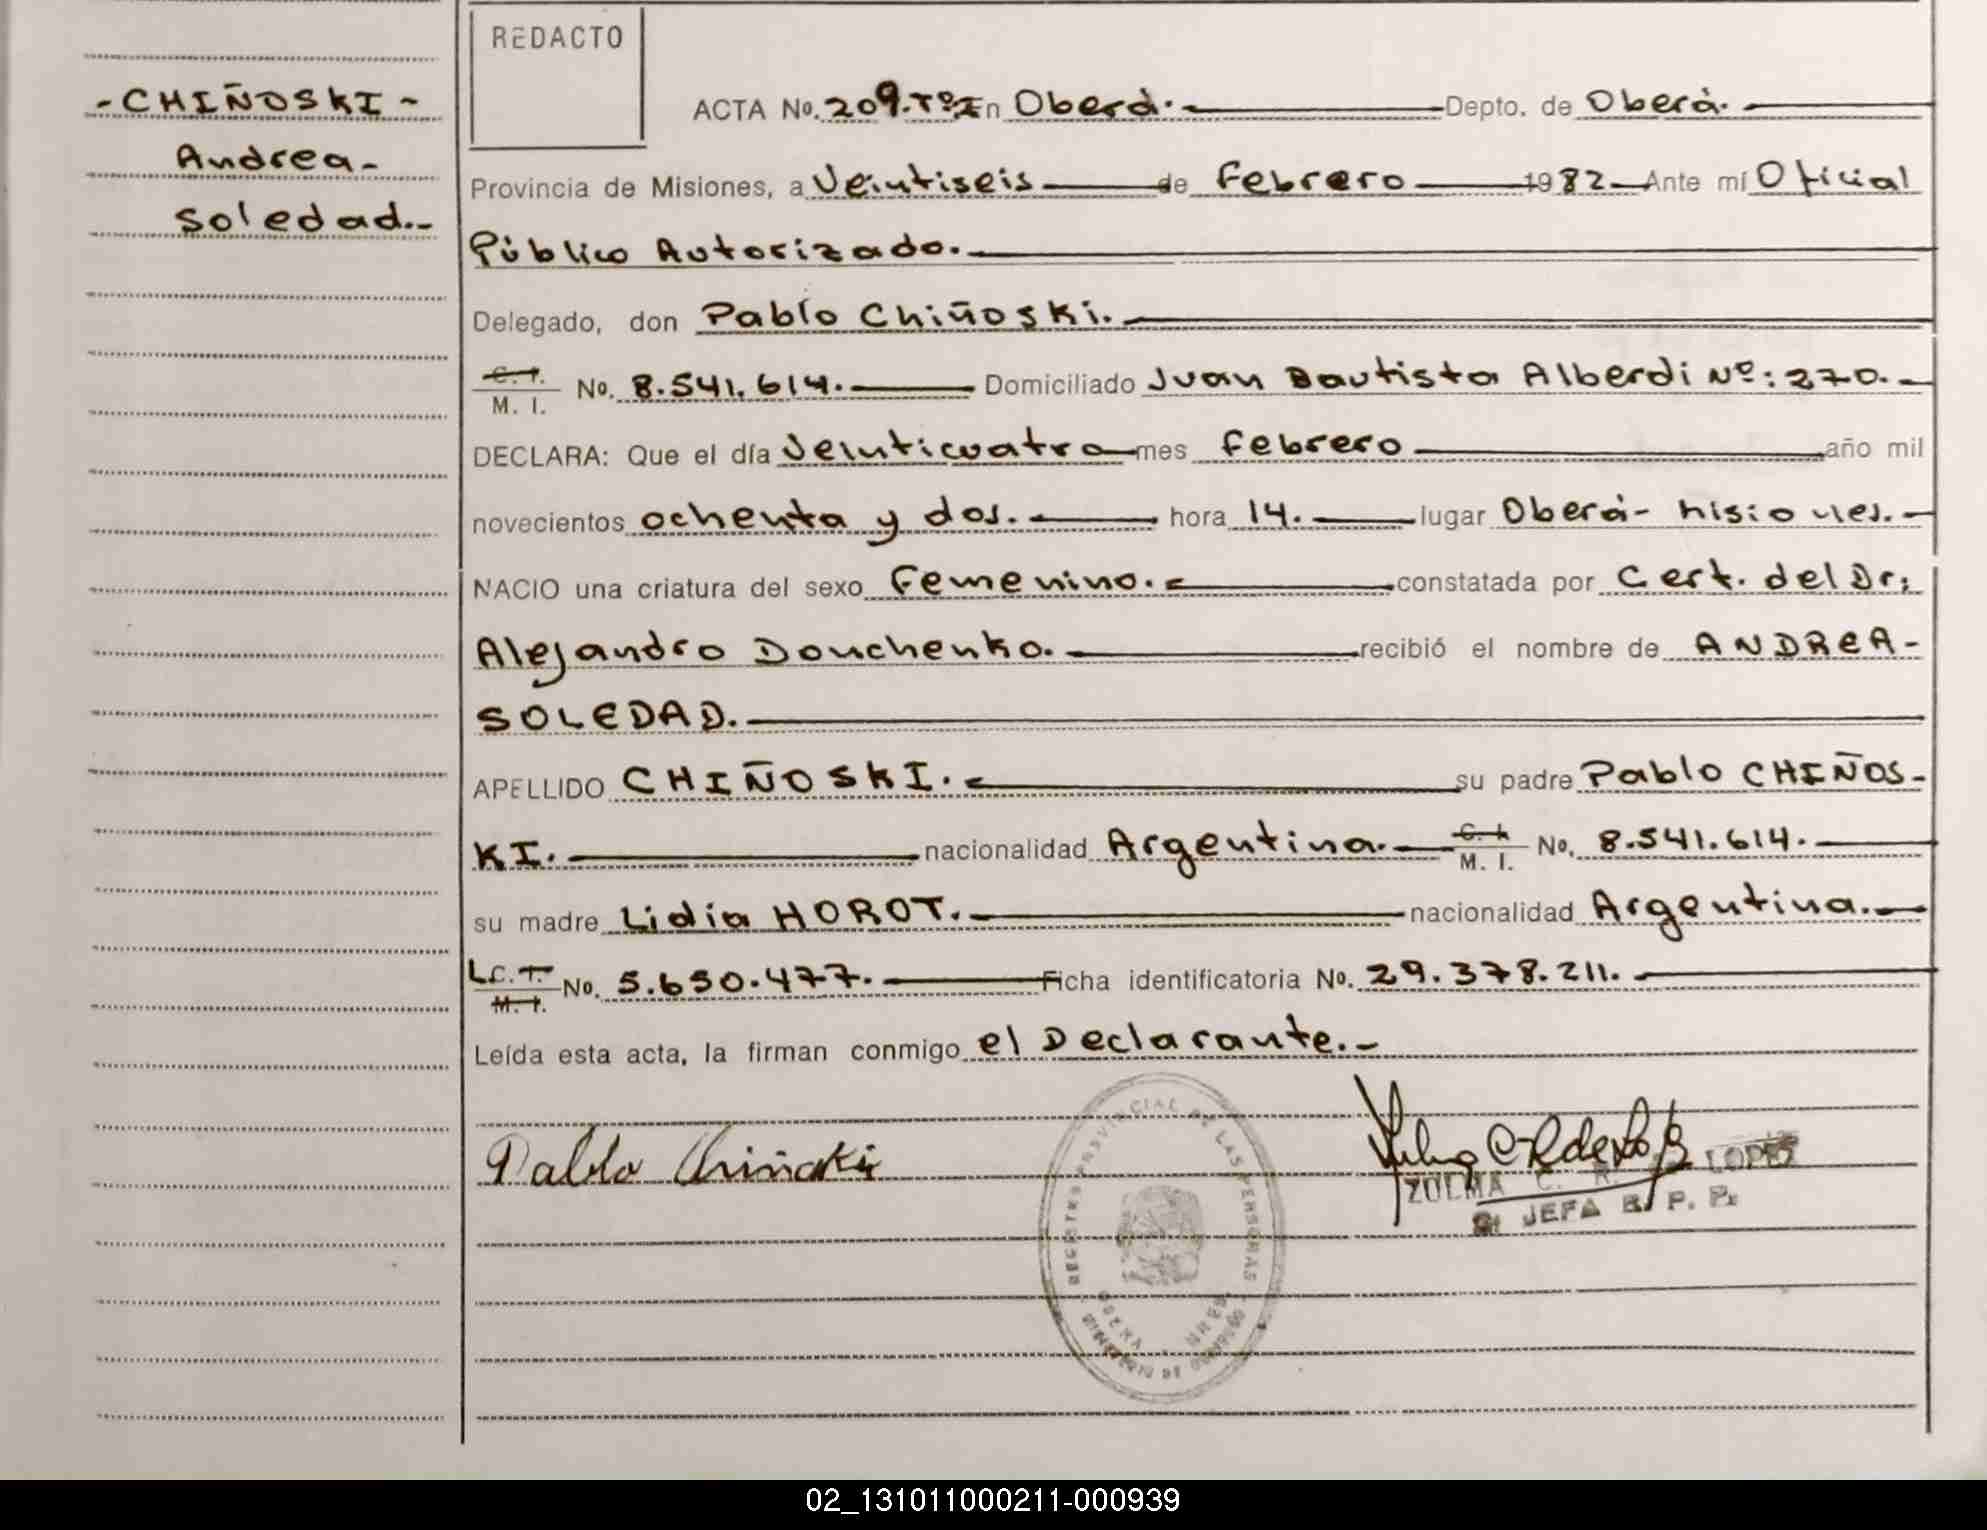 REDACTO
-CHIÑOSKI-
Andrea-
Soledad.-
ACTA No. 209.Tº I En Oberá. Depto. de Oberá.
Provincia de Misiones, a Veintiseis de Febrero 1982 Ante mí Oficial
Público Autorizado.
Delegado, don Pablo Chiñoski.
C. I. M. I. No. 8.541.614. Domiciliado Juan Bautista Alberdi Nº: 270.-
DECLARA: Que el día Veinticuatro mes Febrero año mil
novecientos ochenta y dos. hora 14. lugar Oberá- Misiones.-
NACIO una criatura del sexo Femenino. constatada por Cert. del Dr;
Alejandro Douchenko. recibió el nombre de ANDREA-
SOLEDAD.
APELLIDO CHIÑOSKI. su padre Pablo CHIÑOS-
KI. nacionalidad Argentina. C. I. M. I. No. 8.541.614.
su madre Lidia HOROT. nacionalidad Argentina.-
L.C. I. M. I. No. 5.650.477. Ficha identificatoria No. 29.378.211.
Leída esta acta, la firman conmigo el Declarante.-
Pablo Chiñoski
ZULMA C. R. LOPES
JEFA R. P. P.
REGISTRO PROVINCIAL DE LAS PERSONAS
OBERA
MINISTERIO DE GOBIERNO
02_131011000211-000939